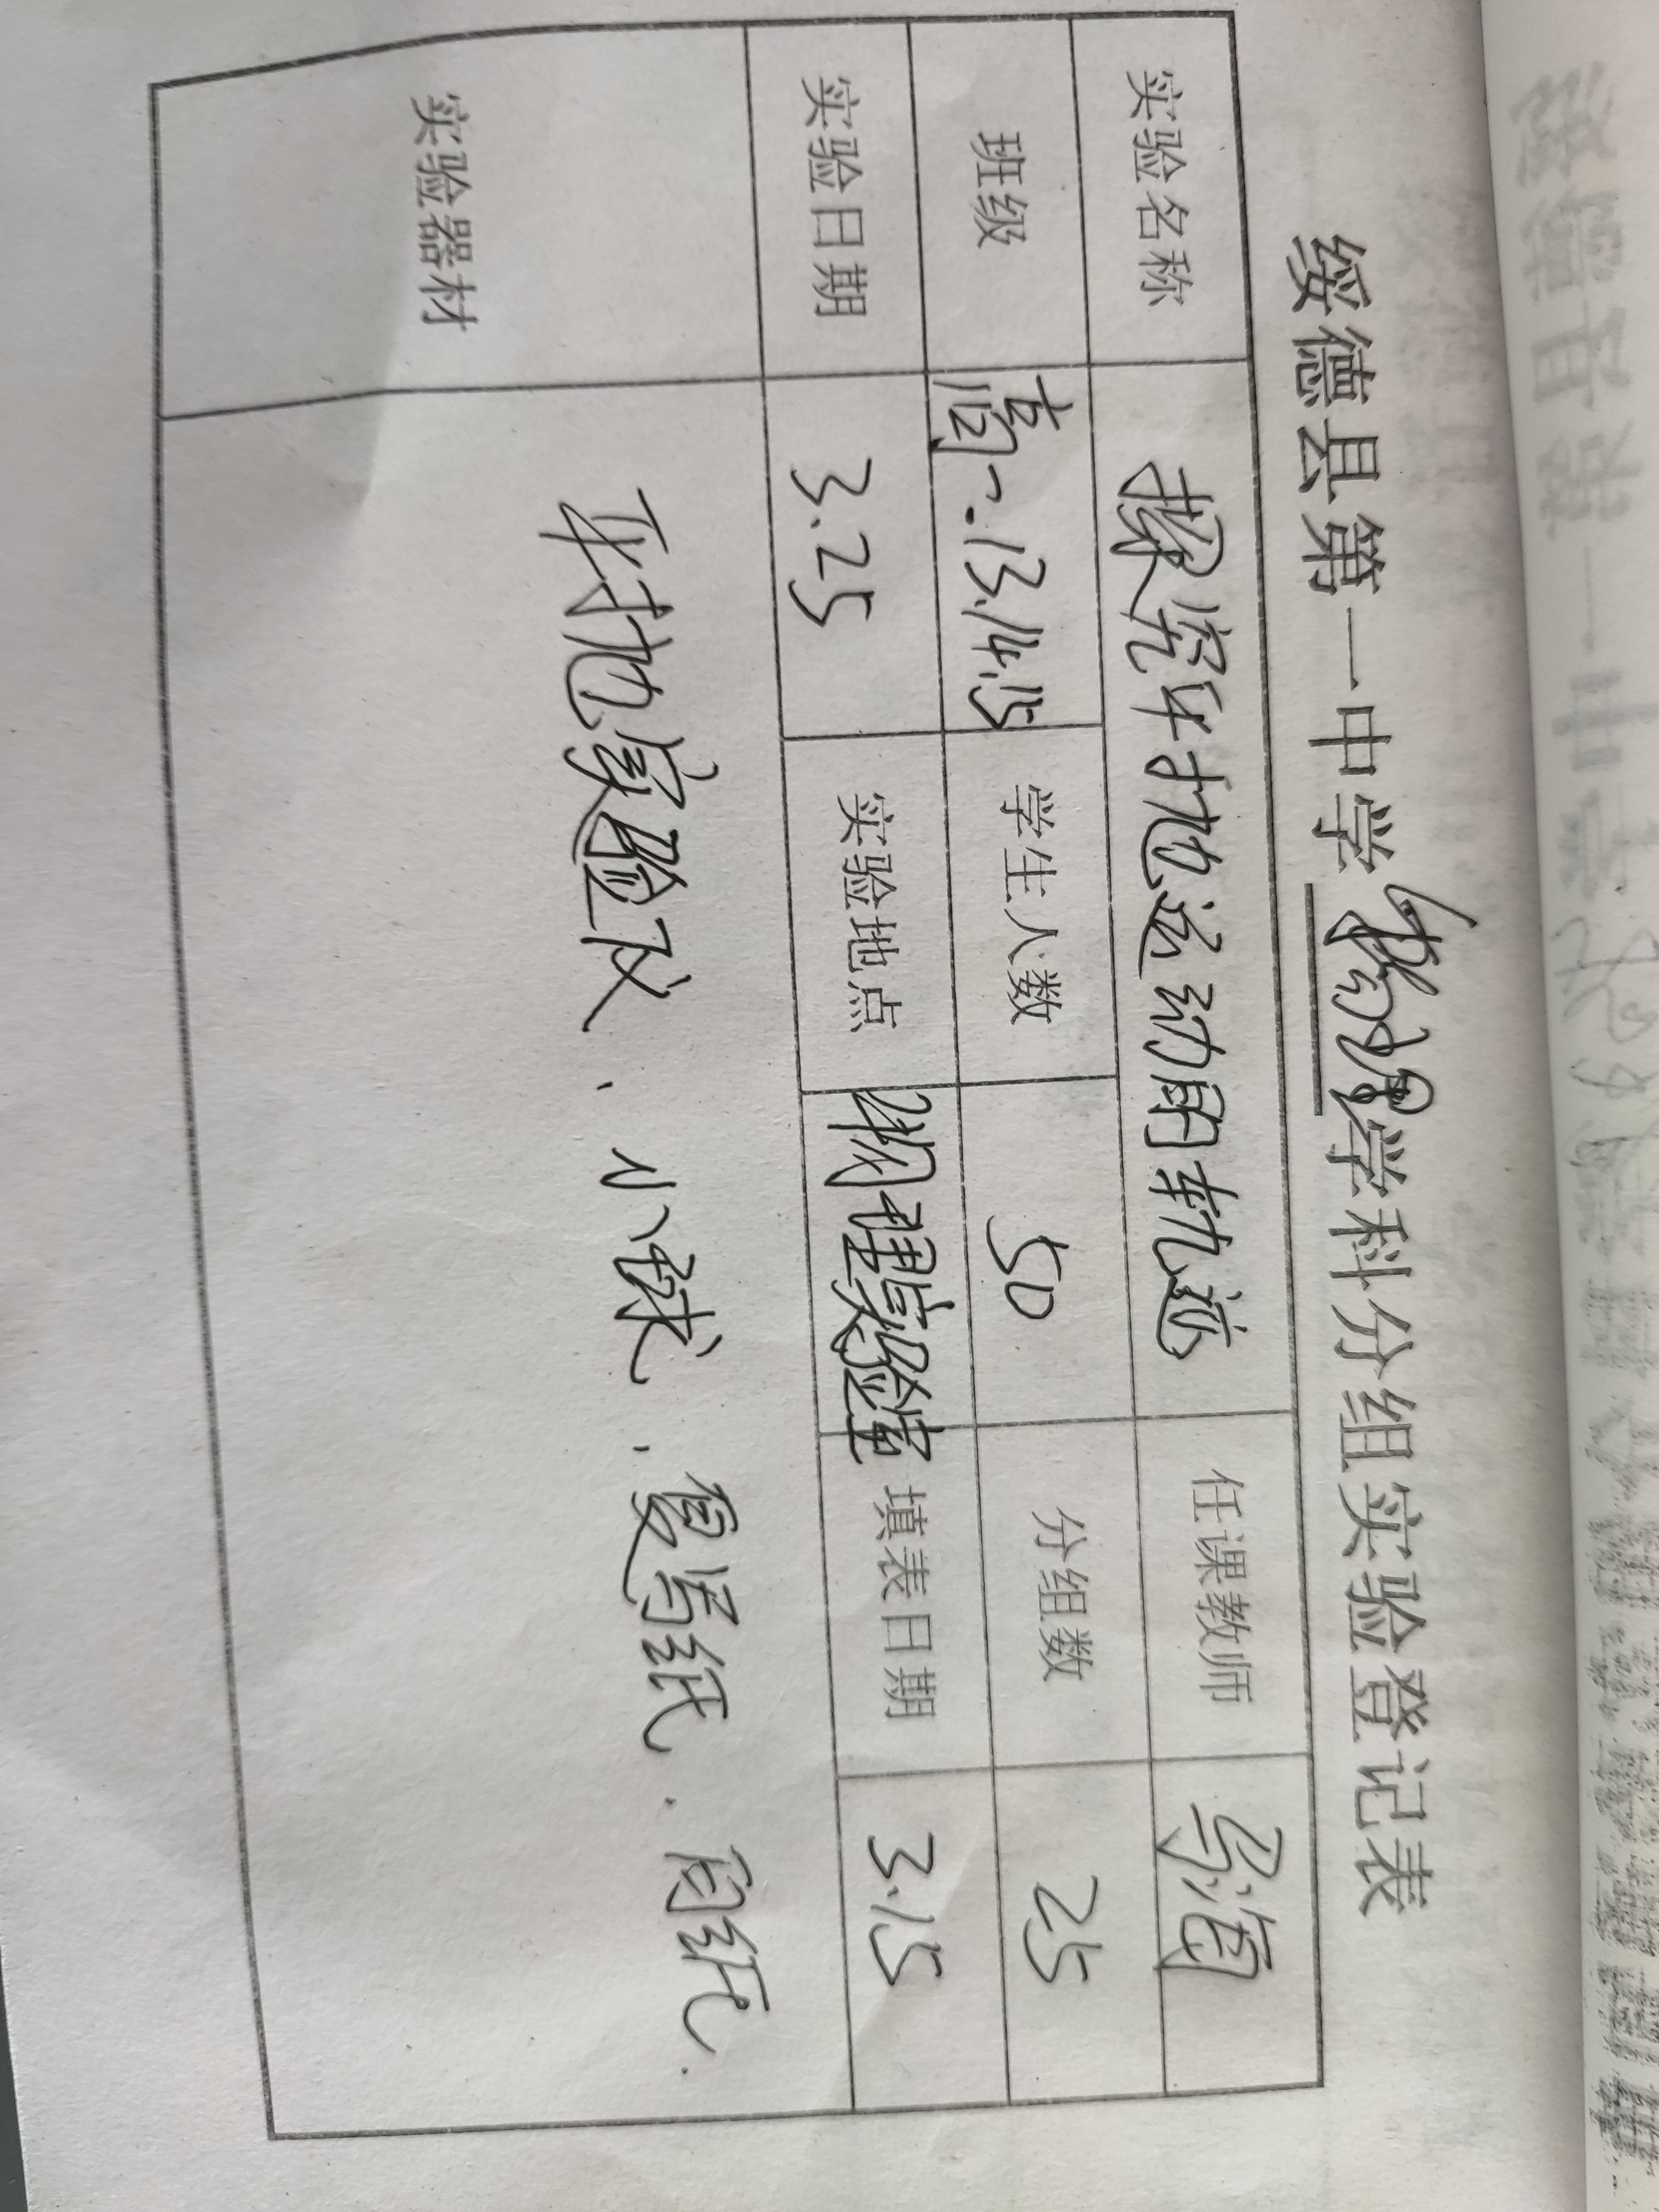 绥德县第一中学物理学科分组实验登记表
实验名称 探究平抛运动的轨迹 任课教师 马海
班级 高一.13.14.15 学生人数 50 分组数 25
实验日期 3.25 实验地点 物理实验室 填表日期 3.15
实验器材 平抛实验仪、小球、复写纸、白纸.